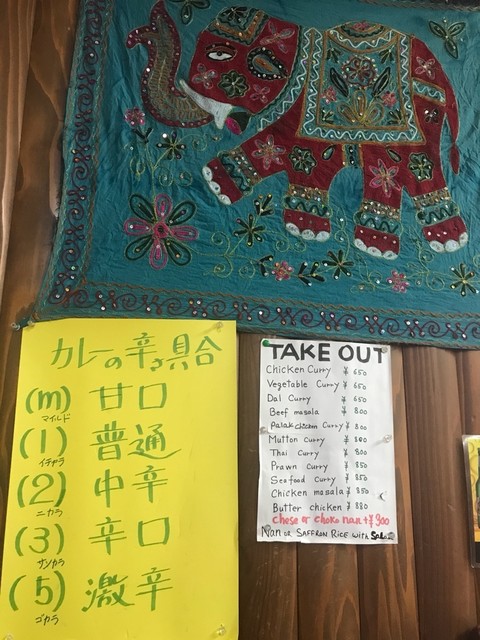 カレーの辛さ具合
(m) 甘口
マイルド
(1) 普通
イチカラ
(2) 中辛
ニカラ
(3) 辛口
サンカラ
(5) 激辛
ゴカラ
TAKE OUT
Chicken Curry ¥ 650
Vegetable Curry ¥ 650
Dal Curry ¥ 650
Beef masala ¥ 800
Palak chicken Curry ¥ 800
Mutton Curry ¥ 800
Thai Curry ¥ 800
Prawn Curry ¥ 850
Seafood Curry ¥ 850
Chicken masala ¥ 850
Butter chicken ¥ 880
chese or choko nan + ¥ 300
Nan or SAFFRON RICE WITH